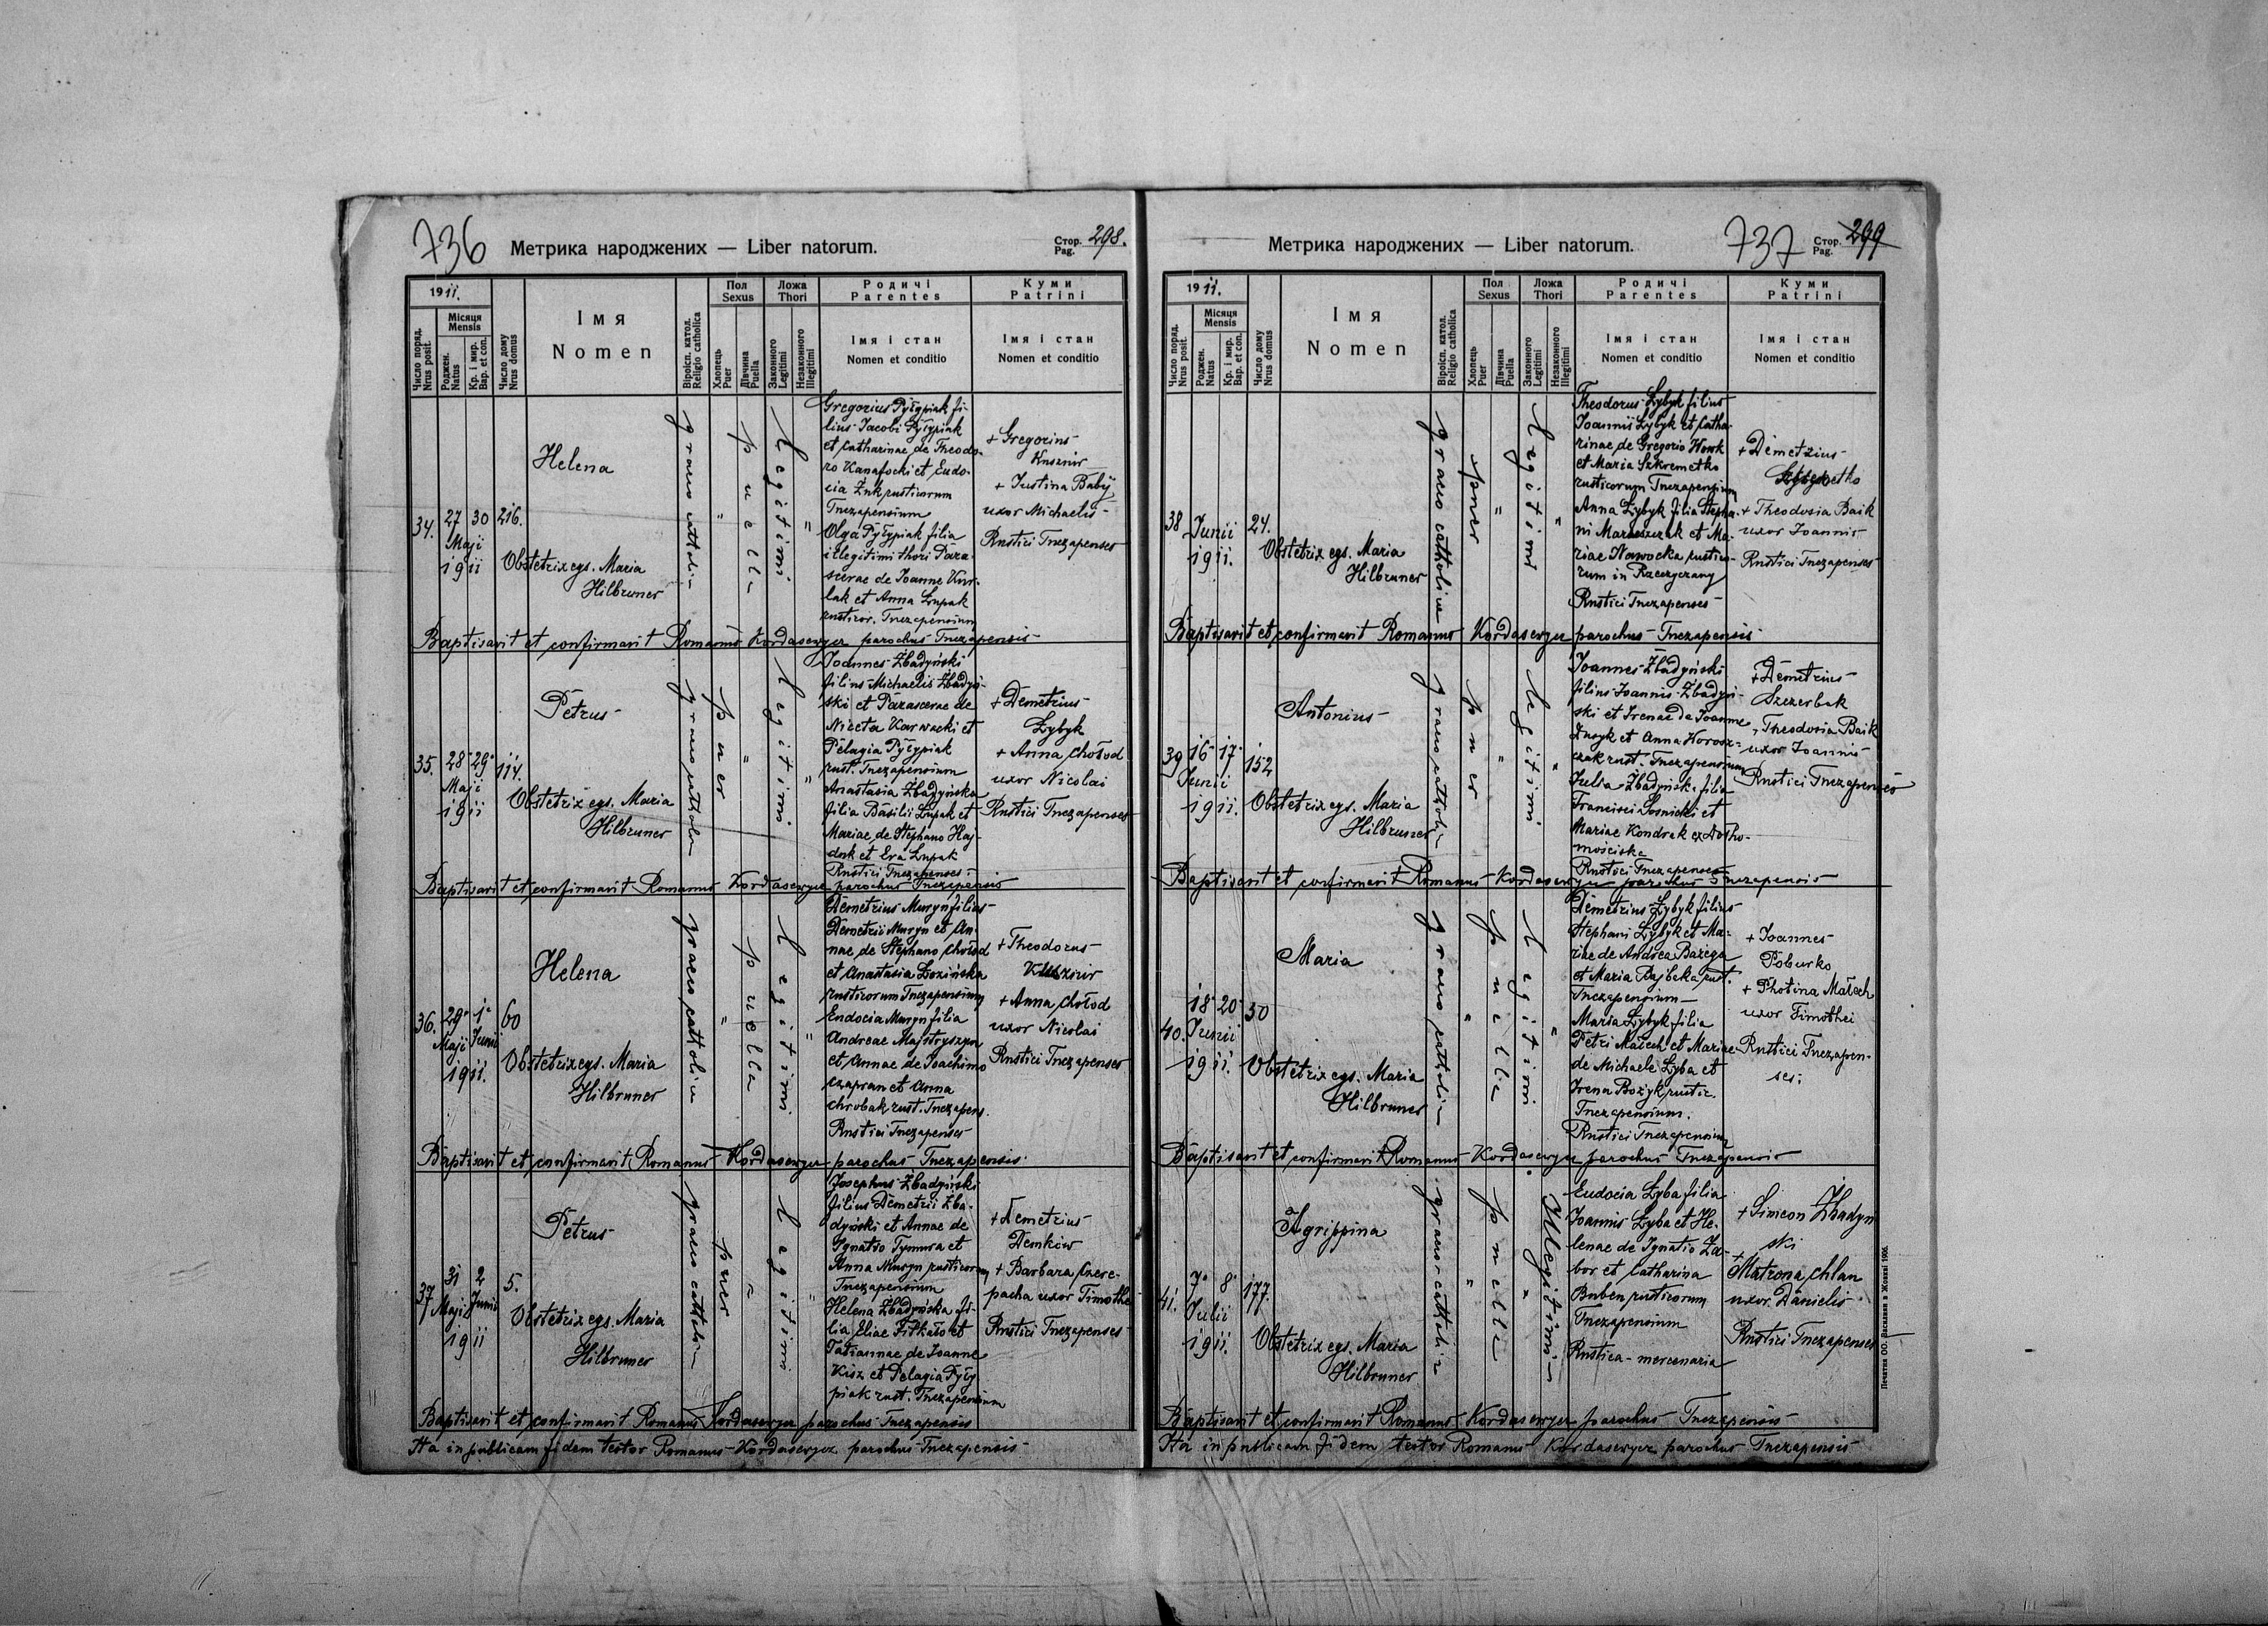 736
Метрика народжених — Liber natorum.
Стор. Pag. 298.
1911.
Число поряд. Nrus posit.
Місяця Mensis
Роджен. Natus
Кр. і мир. Bap. et con.
Число дому Nrus domus
Імя
Nomen
Віроісп. катол. Religio catholica
Пол Sexus
Хлопець Puer
Дівчина Puella
Ложа Thori
Законного Legitimi
Незаконного Illegitimi
Родичі
Parentes
Імя і стан
Nomen et conditio
Куми
Patrini
Імя і стан
Nomen et conditio
34.
27 30
Maji
1911
216.
Helena
Obstetrix egs. Maria
Hilbruner
graeco catholica
puella
Legitimi
Gregorius Pyłypiak fi-
lius Jacobi Pyłypiak
et Catharinae de Theodo-
ro Kanafocki et Eudo-
cia Żuk rusticorum
Tnezapensium
Olga Pyłypiak filia
illegitimi thori Para-
scevae de Joanne Kur-
lak et Anna Łupak
rusticor. Tnezapensium
+ Gregorius
Kusznir
+ Justina Babÿ
uxor Michaelis
Rustici Tnezapenses
Baptisavit et confirmavit Romanus Kordasewycz parochus Tnezapensis
35.
28 29
Maji
1911
114.
Petrus
Obstetrix egs. Maria
Hilbruner
graeco catholica
puer
Legitimi
Joannes Zbadyński
filius Michaelis Zbadyń-
ski et Parascevae de
Niceta Karwacki et
Pelagia Pyłypiak
rust. Tnezapensium
Anastasia Zbadyńska
filia Basilii Łupak et
Mariae de Stephano Haj-
duk et Eva Łupak
Rustici Tnezapenses
+ Demetrius
Zybyk
+ Anna Chołod
uxor Nicolai
Rustici Tnezapenses
Baptisavit et confirmavit Romanus Kordasewycz parochus Tnezapensis
36.
29 1
Maji Junii
1911.
60
Helena
Obstetrix egs. Maria
Hilbruner
graeco catholica
puella
Legitimi
Demetrius Muryn filius
Demetrii Muryn et An-
nae de Stephano Chołod
et Anastasia Łozińska
rusticorum Tnezapensium
Eudocia Muryn filia
Andreae Majstryszyn
et Annae de Joachimo
Czapran et Anna
Chrobak rust. Tnezapens.
Rustici Tnezapenses
+ Theodorus
Kusznir
+ Anna Chołod
uxor Nicolai
Rustici Tnezapenses
Baptisavit et confirmavit Romanus Kordasewycz parochus Tnezapensis
37
31 2
Maji Junii
1911
5.
Petrus
Obstetrix egs. Maria
Hilbruner
graeco catholica
puer
Legitimi
Josephus Zbadyński
filius Demetrii Zba-
dyński et Annae de
Ignatio Tymura et
Anna Muryn rusticorum
Tnezapensium
Helena Zbadyńska fi-
lia Eliae Fitkało et
Tatiannae de Joanne
Kisz et Pelagia Pyły
piak rust. Tnezapensium
+ Demetrius
Demkiw
+ Barbara Czere-
pacha uxor Timothei
Rustici Tnezapenses
Baptisavit et confirmavit Romanus Kordasewycz parochus Tnezapensis
Ita in publicam fidem testor Romanus Kordasewycz parochus Tnezapensis
Метрика народжених — Liber natorum.
737
Стор. Pag. 299
1911.
Число поряд. Nrus posit.
Місяця Mensis
Роджен. Natus
Кр. і мир. Bap. et con.
Число дому Nrus domus
Імя
Nomen
Віроісп. катол. Religio catholica
Пол Sexus
Хлопець Puer
Дівчина Puella
Ложа Thori
Законного Legitimi
Незаконного Illegitimi
Родичі
Parentes
Імя і стан
Nomen et conditio
Куми
Patrini
Імя і стан
Nomen et conditio
38
Junii
1911.
24.
Obstetrix egs. Maria
Hilbruner
graeco catholicae
puer
Legitimi
Theodorus Zybyk filius
Joannis Zybyk et Catha-
rinae de Gregorio Wowk
et Maria Szkremetko
rusticorum Tnezapensium
Anna Zybyk filia Stepha-
ni et Ma-
riae Nawocka rustico-
rum in
Rustici Tnezapenses
+ Demetrius
+ Theodosia Baik
uxor Joannis
Rustici Tnezapenses
Baptisavit et confirmavit Romanus Kordasewycz parochus Tnezapensis
39
16 17
Junii
1911.
152
Antonius
Obstetrix egs. Maria
Hilbruner
graeco catholica
puer
Legitimi
Joannes Zbadyński
filius Joannis Zbadyń-
ski et Irenae de Joanne
Dusyk et Anna Worosz-
czak rust. Tnezapensium
Julia Zbadyńska filia
Francisci Sosnicki et
Mariae Kondrak ex Dotho-
mościska
Rustici Tnezapenses
+ Demetrius
Szczerbak
Theodosia Baik
uxor Joannis
Rustici Tnezapenses
Baptisavit et confirmavit Romanus Kordasewycz parochus Tnezapensis
40.
18 20
Junii
1911.
30
Maria
Obstetrix egs. Maria
Hilbruner
graeco catholica
puella
Legitimi
Demetrius Zybyk filius
Stephani Zybyk et Ma-
riae de Andrea Bazega
et Maria Bajbaka rust.
Tnezapensium
Maria Zybyk filia
Petri Małech et Mariae
de Michaele Zyba et
Irena Bożyk rustic.
Tnezapensium.
Rustici Tnezapensium
+ Joannes
Poburko
+ Photina Małech
uxor Timothei
Rustici Tnezapen-
ses.
Baptisavit et confirmavit Romanus Kordasewycz parochus Tnezapensis
41.
7 8
Julii
1911.
177.
Agrippina
Obstetrix egs. Maria
Hilbruner
graeco catholica
puella
Illegitimi
Eudocia Zyba filia
Joannis Zyba et He-
lenae de Ignatio Za-
bor et Catharina
Buben rusticorum
Tnezapensium
Rustica mercenaria
+ Simeon Zbadyń
ski
+ Matrona Chlan
uxor Danielis
Rustici Tnezapenses
Baptisavit et confirmavit Romanus Kordasewycz parochus Tnezapensis
Ita in publicam fidem testor Romanus Kordasewycz parochus Tnezapensis
Печатня ОО. Василиян в Жовкві 1906.